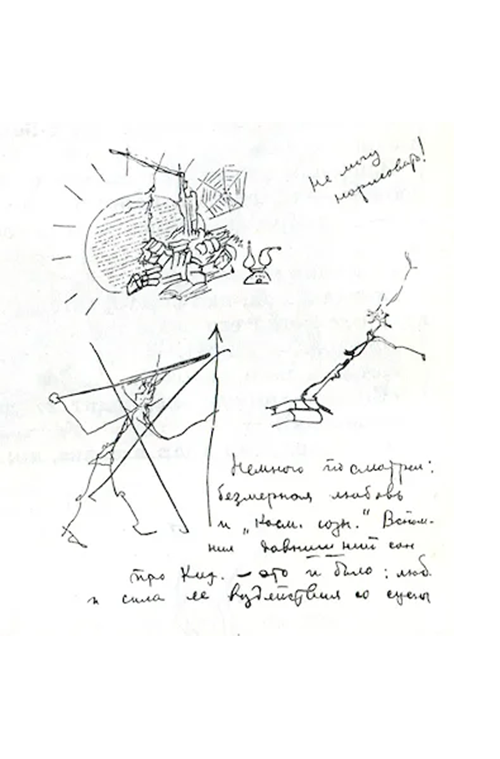 Не могу
нарисовать!
Немного посмотрел:
безмерная любовь
и „косм. созн.“ Вспом-
нил давнишний сон
про Кир. — это и было: люб.
и сила ее воздействия со сцены